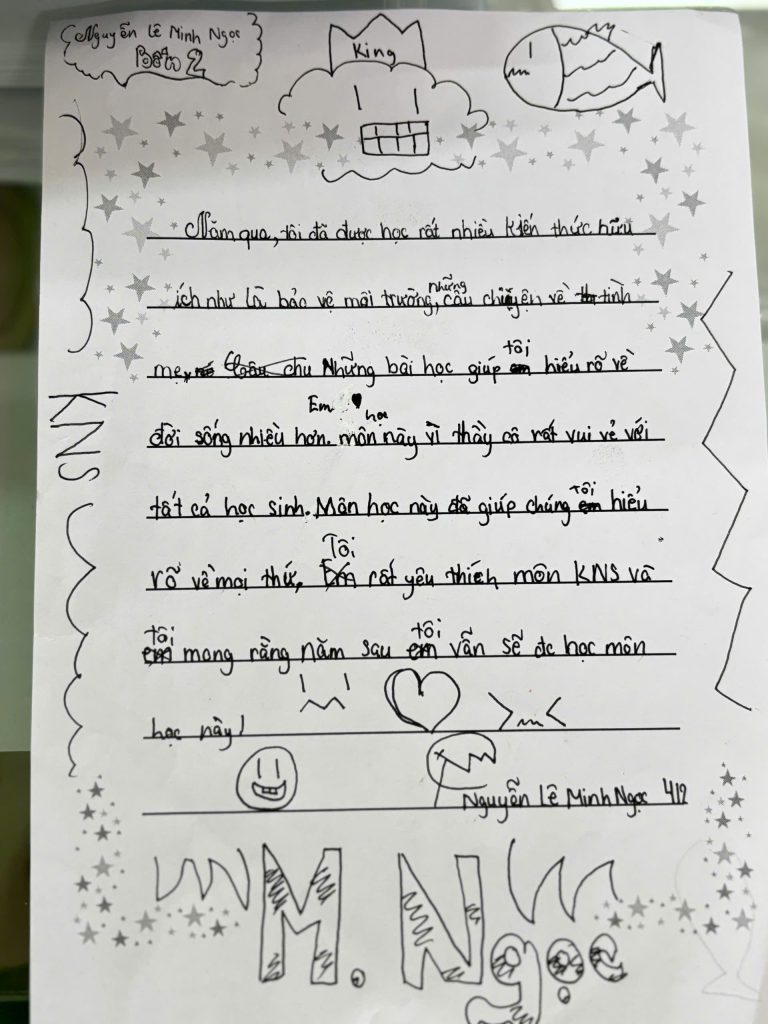 Nguyễn Lê Minh Ngọc
King
Năm qua, tôi đã được học rất nhiều kiến thức hữu
ích như là bảo vệ môi trường, những câu chuyện về tình
mẹ, Những bài học giúp tôi hiểu rõ về
đời sống nhiều hơn. Em ♥ học môn này vì thầy cô rất vui vẻ với
tất cả học sinh. Môn học này đã giúp chúng tôi hiểu
rõ về mọi thứ. Tôi rất yêu thích môn KNS và
tôi mong rằng năm sau tôi vẫn sẽ đc học môn
học này!
Nguyễn Lê Minh Ngọc 4/2
KNS
M. Ngọc